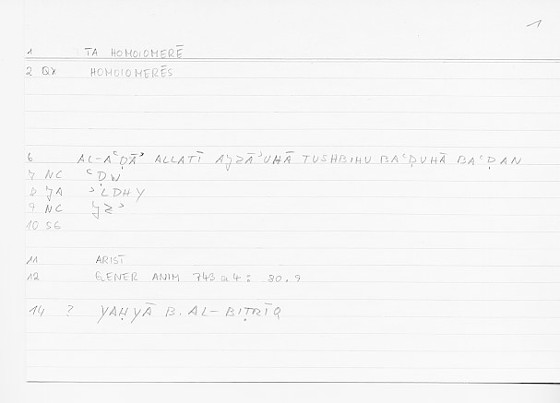 1
1 TA HOMOIOMERĒ
2 QX HOMOIOMERĒS
6 AL-AʿḌĀʾ ALLATĪ AJZĀʾUHĀ TUSHBIHU BAʿḌUHĀ BAʿḌAN
7 NC ʿḌW
8 JA ʾLDHY
9 NC JZʾ
10 SG
11 ARIST
12 GENER ANIM 743 a 4: 80.9
14 ? YAḤYĀ B. AL-BIṬRĪQ